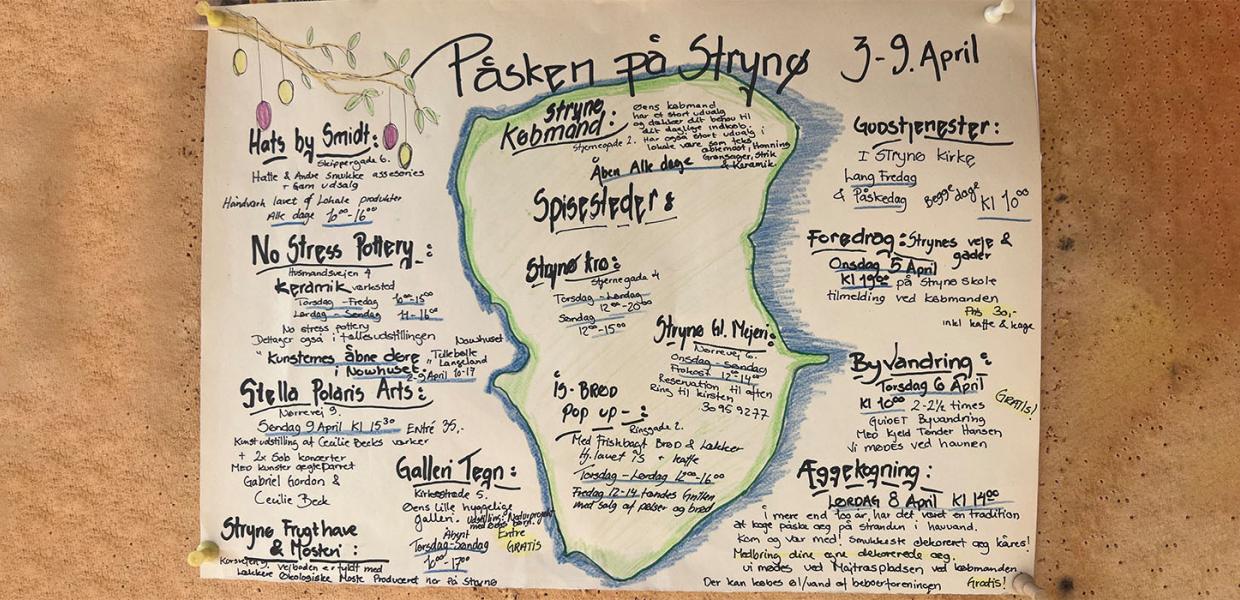 Påsken på Strynø 3-9. April
Hats by Smidt:
Skippergade 6.
Hatte & Andre smukke assesories
+ Garn udsalg
Håndværk lavet af lokale produkter
Alle dage 10⁰⁰-16⁰⁰
No Stress Pottery:
Husmandsvejen 4
Keramik værksted
Torsdag - Fredag 10⁰⁰-15⁰⁰
Lørdag - Søndag 11-16⁰⁰
No stress pottery
Deltager også i fællesudstillingen
"Kunsternes åbne døre"
i Nowhuset.
Nowhuset
Tullebølle
Langeland
2-9 April 10-17
Stella Polaris Arts:
Nørrevej 9.
Søndag 9 April Kl 15³⁰ Entré 35,-
Kunstudstilling af Cecilie Becks værker
+ 2x Solo koncerter
Med kunster ægteparret
Gabriel Gordon &
Cecilie Beck
Strynø Frugthave
& Mosteri:
vejboden er fyldt med
Lækkre Økologiske Moste Produceret her på Strynø
Galleri Tegn:
Kirkestræde 5.
Øens Lille hyggelige
galleri.
Udstilling: Naturprojekt
med øens børn.
Åbent
Torsdag-Søndag
10⁰⁰-17⁰⁰
Entre
GRATIS
Strynø
Købmand:
Stjernegade 2.
Øens købmand
har et stort udvalg
og dækker dit behov til
dit daglige indkøb.
Har også stort udvalg i
lokale vare som feks
æblemost, Honning
Grønsager, strik
& Keramik
Åben Alle dage
Spisesteder:
Strynø Kro:
Stjernegade 4
Torsdag - Lørdag
12⁰⁰-20⁰⁰
Søndag
12⁰⁰-15⁰⁰
Strynø Gl. Mejeri:
Nørrevej 6.
Onsdag - Søndag
Frokost 12-14⁰⁰
Reservation til aften
Ring til Kirsten
30959277
is - BRØD
Pop up -:
Ringgade 2.
Med Friskbagt Brød & Lækker
Hj. lavet is + kaffe
Torsdag - Lørdag 12⁰⁰-16⁰⁰
Fredag 12-14 tændes Grillen
med salg af pølser og brød
Gudstjenester:
I Strynø Kirke
Lang Fredag
& Påskedag Begge dage Kl 10⁰⁰
Foredrag: Strynøs veje &
gader
Onsdag 5 April
Kl 19⁰⁰ på Strynø Skole
tilmelding ved købmanden
Pris 30,-
inkl kaffe & kage
Byvandring:
Torsdag 6 April
Kl 10⁰⁰ 2-2½ times
GRATIS!
Guidet Byvandring
Med Kjeld Tønder Hansen
Vi mødes ved havnen
Æggekogning:
LØRDAG 8 April Kl 14⁰⁰
i mere end 100 år, har det været en tradition
at koge påske æg på stranden i havvand.
Kom og vær med! Smukkeste dekoreret æg kåres!
Medbring dine egne dekorerede æg.
vi mødes ved Majtræspladsen ved købmanden
Der kan købes øl/vand af beboerforeningen Gratis!